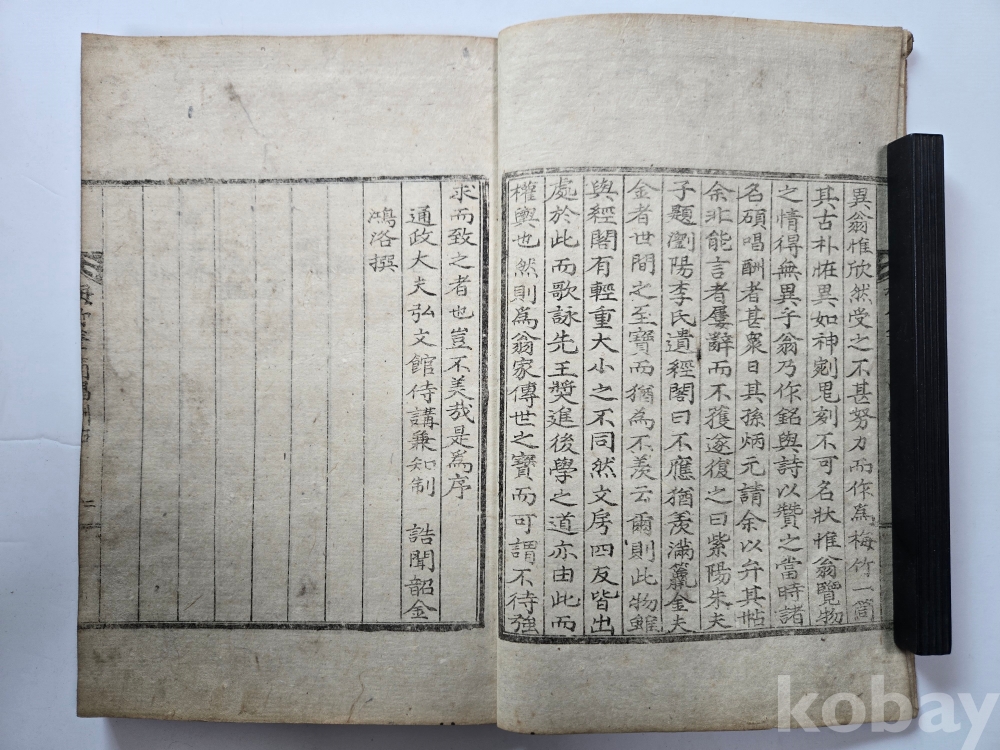 異翁惟欣然受之不甚努力而作爲梅竹一筒
其古朴恠異如神剜鬼刻不可名狀惟翁覽物
之情得無異乎翁乃作銘與詩以贊之當時諸
名碩唱酬者甚衆日其孫炳元請余以弁其帖
余非能言者屢辭而不獲遂復之曰紫陽朱夫
子題瀏陽李氏遺經閣曰不應猶羨滿籯金夫
金者世間之至寶而猶為不羨云爾則此物雖
與經閣有輕重大小之不同然文房四友皆出
處於此而歌詠先王奬進後學之道亦由此而
權輿也然則爲翁家傳世之寶而可謂不待強
求而致之者也豈不美哉是爲序
通政大夫弘文館侍講兼知制 誥聞韶金
鴻洛撰
kobay